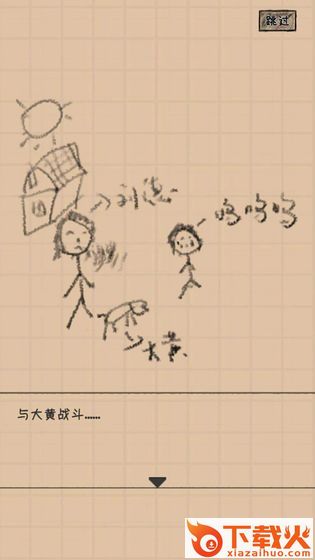 跳过
刘德
呜呜呜
大黄
与大黄战斗......
下载火
xiazaihuo.com